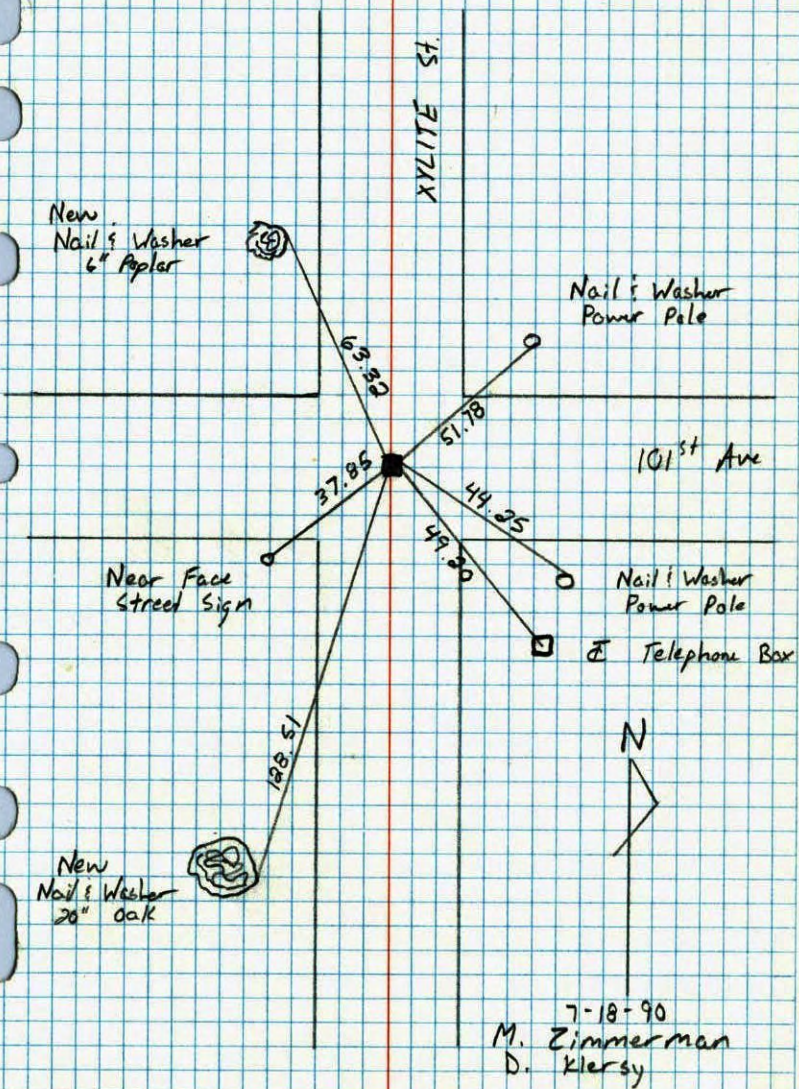 XYLITE St
New
Nail & Washer
6" Poplar
Nail & Washer
Power Pole
63.32
51.78
101st Ave
37.85
44.25
49.20
Near Face
Street Sign
Nail & Washer
Power Pole
℄ Telephone Box
N
128.51
New
Nail & Washer
20" Oak
7-18-90
M. Zimmerman
D. Klersy